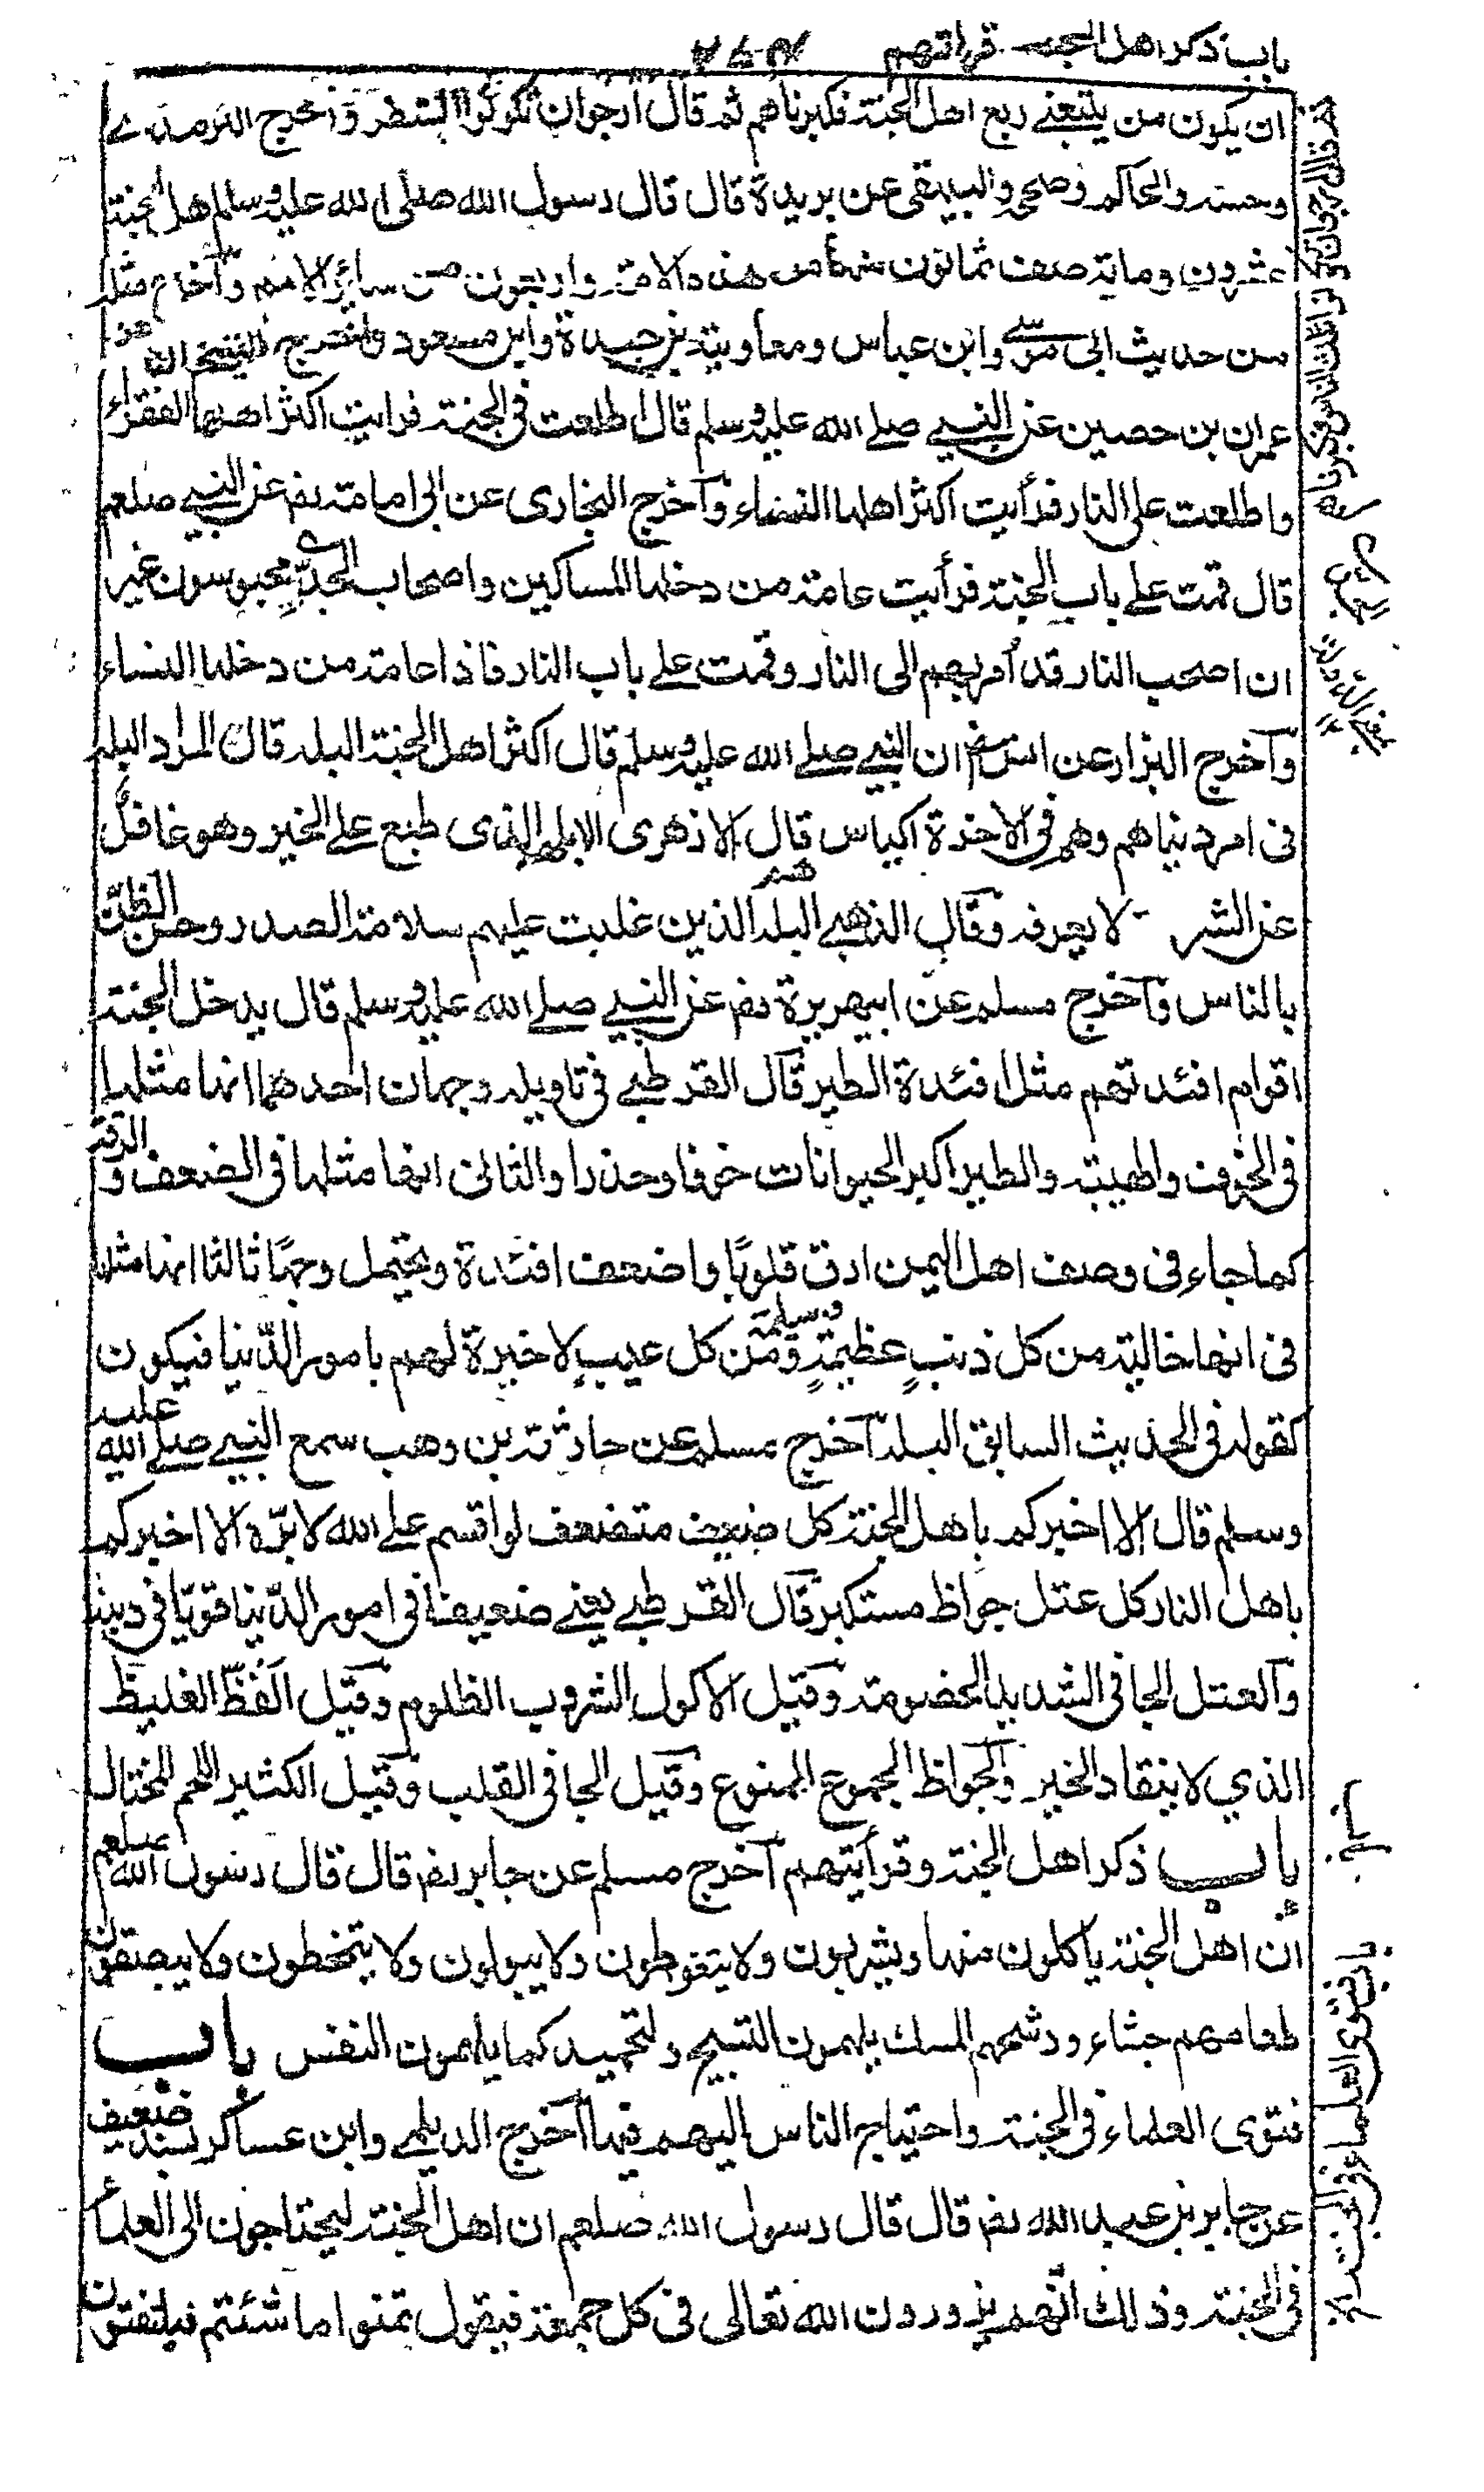 باب ذكر اهل الجنة قراتهم ٢٤٨
ان يكون من يتبعنے ربع اهل الجنة فكبرناهم ثم قال ارجوان تكونوا الشطر وآخرج الترمذے
وحسنه والحاكم وصححه والبيهقى عن بريدة قال قال رسول الله صلى الله عليه وسلم اهل الجنة
عشرون وماية صف ثمانون منها من هذه الامة واربعون من سائر الامم وآخرج مثله
من حديث ابى موسٰے وابن عباس ومعاوية بن حيدة وابن مسعود واخرج الشيخان عن
عمران بن حصين عن النبے صلے الله عليه وسلم قال اطلعت فى الجنة فرايت اكثر اهلها الفقراء
واطلعت على النار فرأيت اكثر اهلها النساء وآخرج البخارى عن ابى امامة رضـ عن النبے صلعم
قال قمت علے باب الجنة فرأيت عامة من دخلها المساكين واصحاب الجدّ محبوسون غير
ان اصحب النار قد اُمر بهم الى النار وقمت علے باب النار فاذا عامة من دخلها النساء
وآخرج البزار عن انس رضـ ان النبے صلے الله عليه وسلم قال اكثر اهل الجنة البله قال المراد البله
فى امر دنياهم وهم فى الاخرة اكياس قال الازهرى الابله الذى طبع علے الخير وهو غافلٌ
عن الشر لا يعرفه وقال الذهبے البله هم الذين غلبت عليهم سلامة الصدر وحسن الظن
بالناس وآخرج مسلم عن ابيهريرة رضـ عن النبے صلے الله عليه وسلم قال يدخل الجنة
اقوام افئدتهم مثل افئدة الطير قال القرطبے فى تاويله وجهان احدهما انها مثلها
فى الخوف والهيبة والطير اكبر الحيوانات خوفا وحذرا والثانى انها مثلها فى الضعف والرقة
كما جاء فى وصف اهل اليمن ارق قلوبًا واضعف افئدة ويحتمل وجهًا ثالثا انها مثلها
فى انها خالية من كل ذنبٍ عظيمةٍ وسلمة ومن كل عيبٍ لا خبرة لهم بامور الدّنيا فيكون
كقوله فى الحديث السابق البله آخرج مسلم عن حارثة بن وهب سمع النبے صلے الله عليه
وسلم قال الا اخبركم باهل الجنة كل ضعيف متضعف لو اقسم علے الله لابرّه الا اخبركم
باهل النار كل عتل جواظ مستكبر قال القرطبے يعنے ضعيفا فى امور الدّنيا قويّا فى دينه
والعتل الجافى الشديد الخصومة وقيل الاكول الشروب الظلوم وقيل الفَظّ الغليظ
الذي لا ينقاد الخير والجواظ الجموع المنوع وقيل الجافى القلب وقيل الكثير اللحم المختال
باب ذكر اهل الجنة وقرأيتهم آخرج مسلم عن جابر رضـ قال قال رسول الله صلعم
ان اهل الجنة ياكلون منها ويشربون ولا يتغوطون ولا يبولون ولا يتمخطون ولا يبصقون
طعامهم جثاء ورشحهم المسك يلهمون التسبيح ولتحميد كما يلهمون النفس باب
فتوى العلماء فى الجنة واحتياج الناس اليهم فيها آخرج الديلمے وابن عساكر بسند ضعيف
عن جابر بن عبد الله رضـ قال قال رسول الله صلعم ان اهل الجنة ليحتاجون الى العلماء
فى الجنة وذلك انّهم يزورون الله تعالى فى كل جمعة فيقول تمنوا ما شئتم فيلتفتون
باب
باب فتوى العلماء فى الجنة